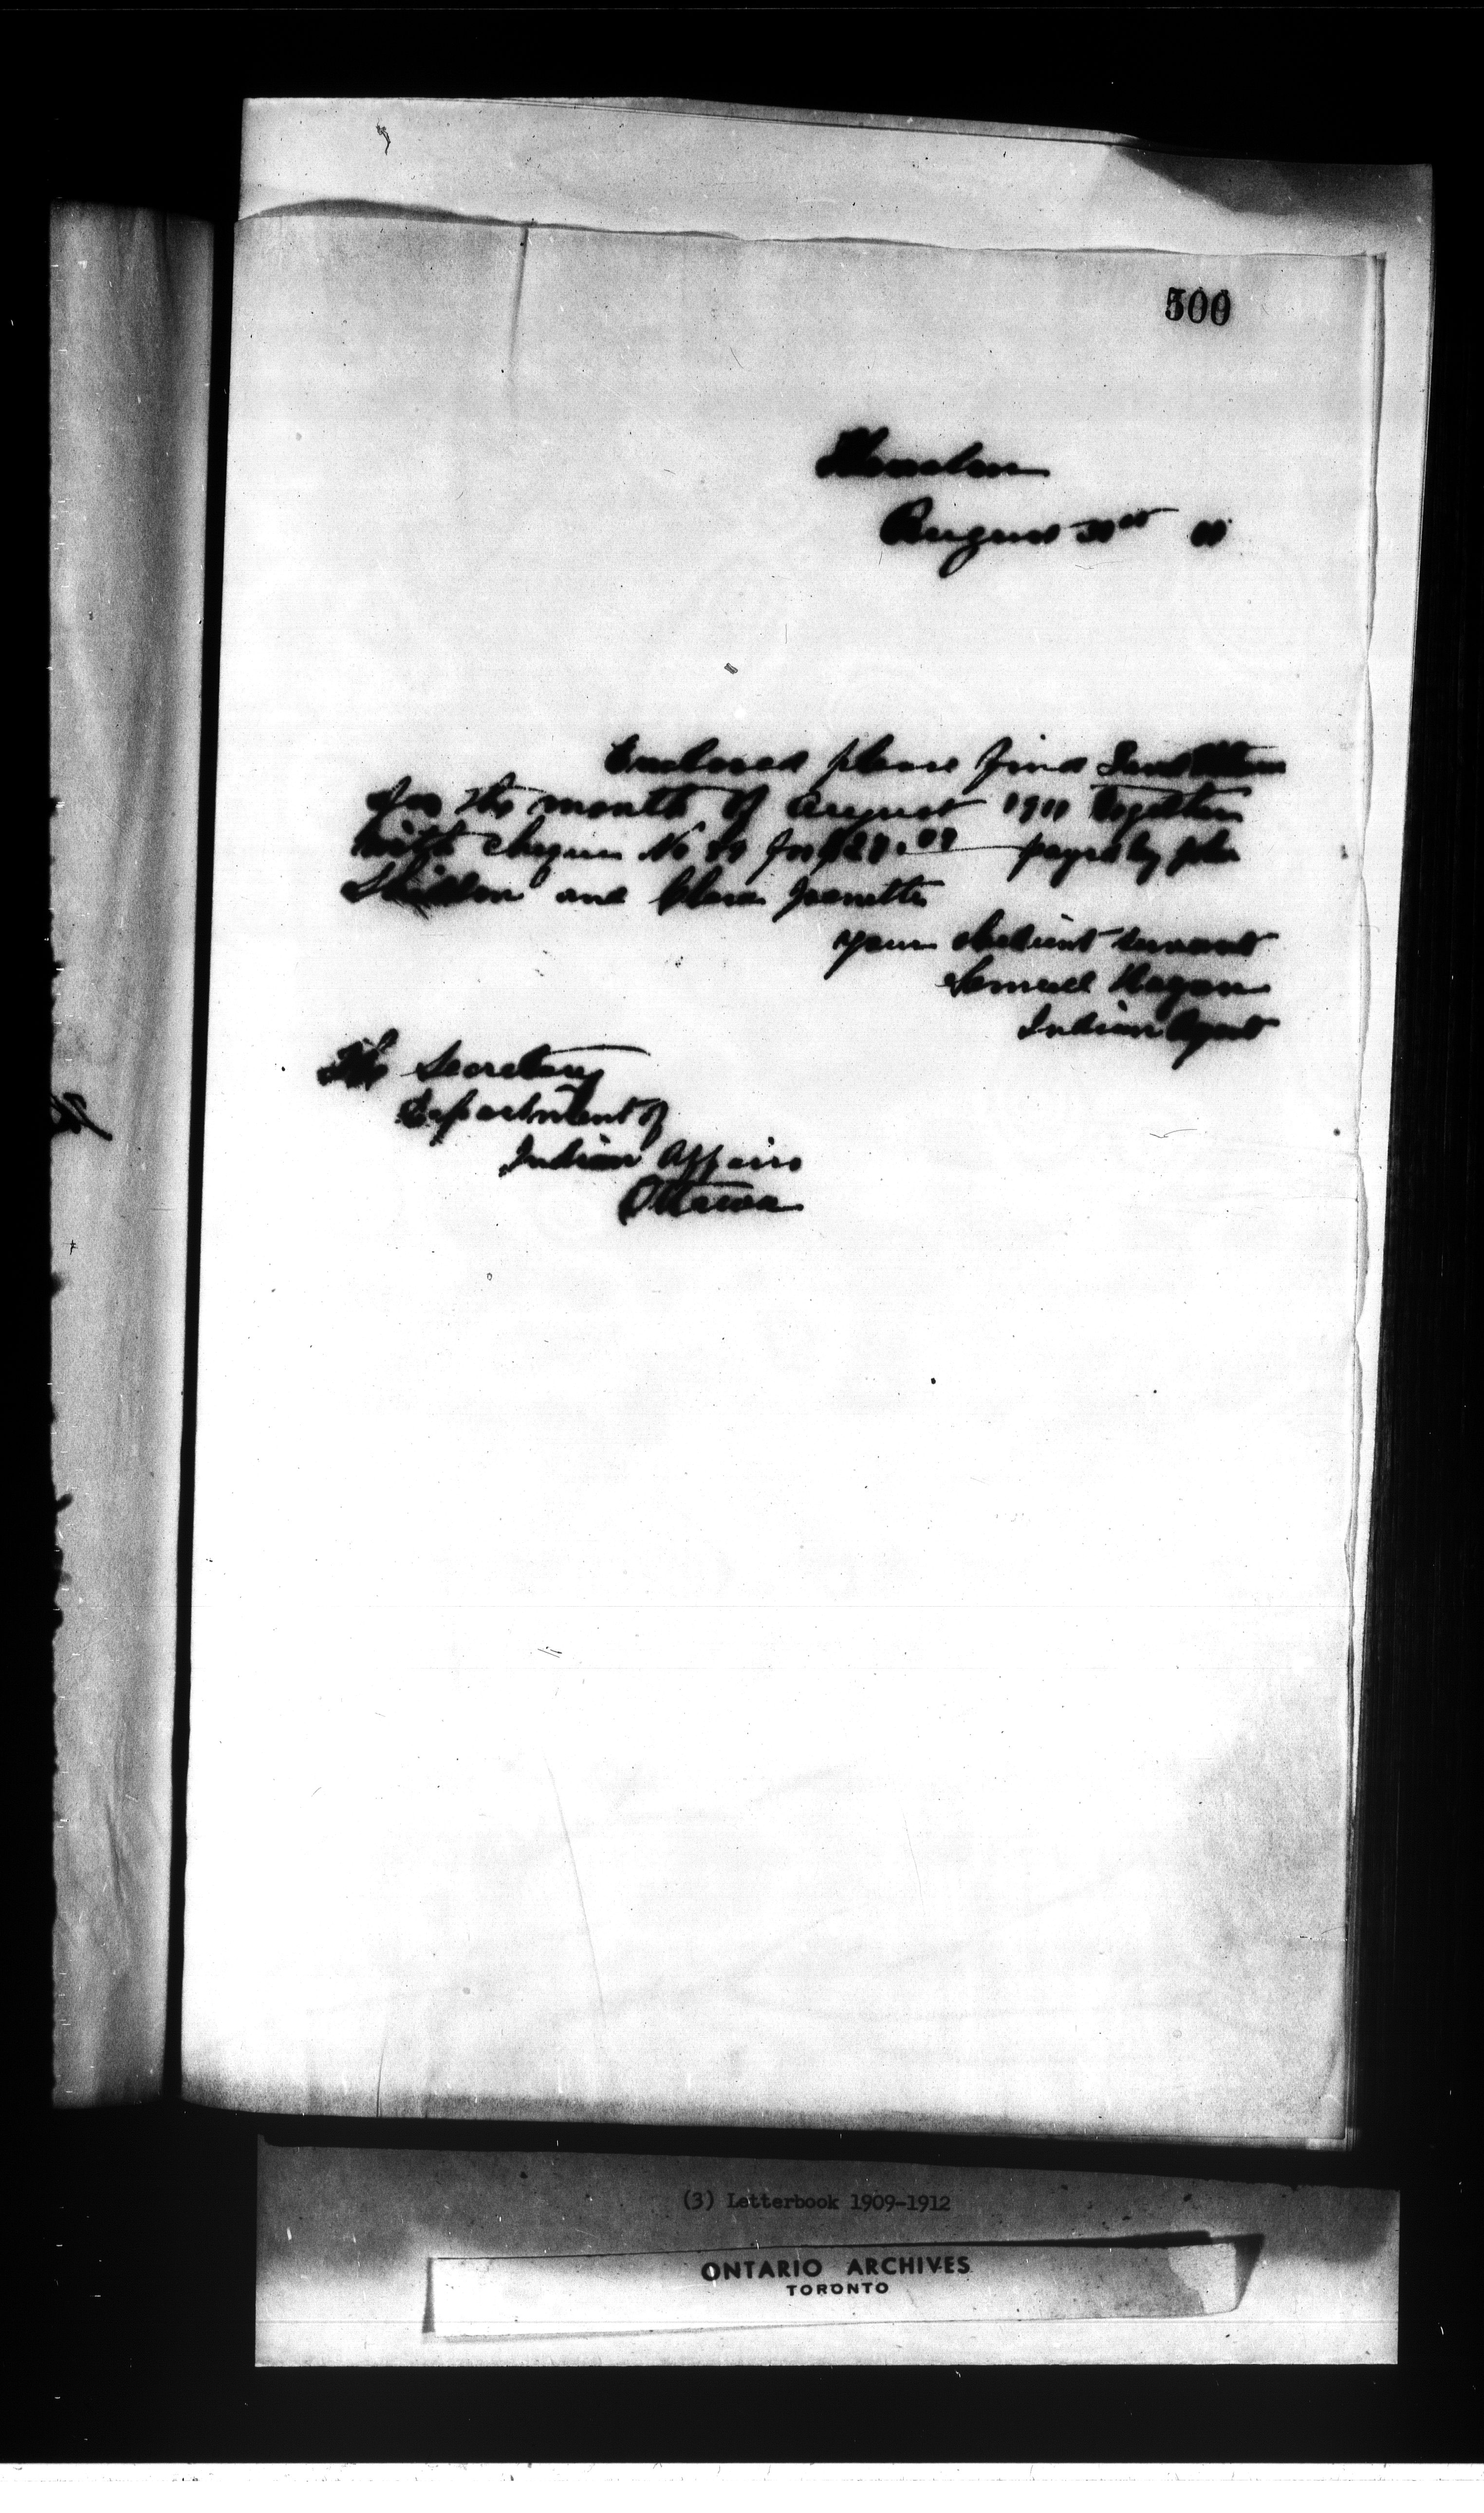 500
Thessalon
August 31st 11
Enclosed please find Land Return
for the month of August 1911 together
with cheque No for $27.00 payed by John
and Clara Jeanette
your obedient servant
Samuel Hagan
Indian Agent
The Secretary
Department of
Indian Affairs
Ottawa
(3) Letterbook 1909-1912
ONTARIO ARCHIVES
TORONTO